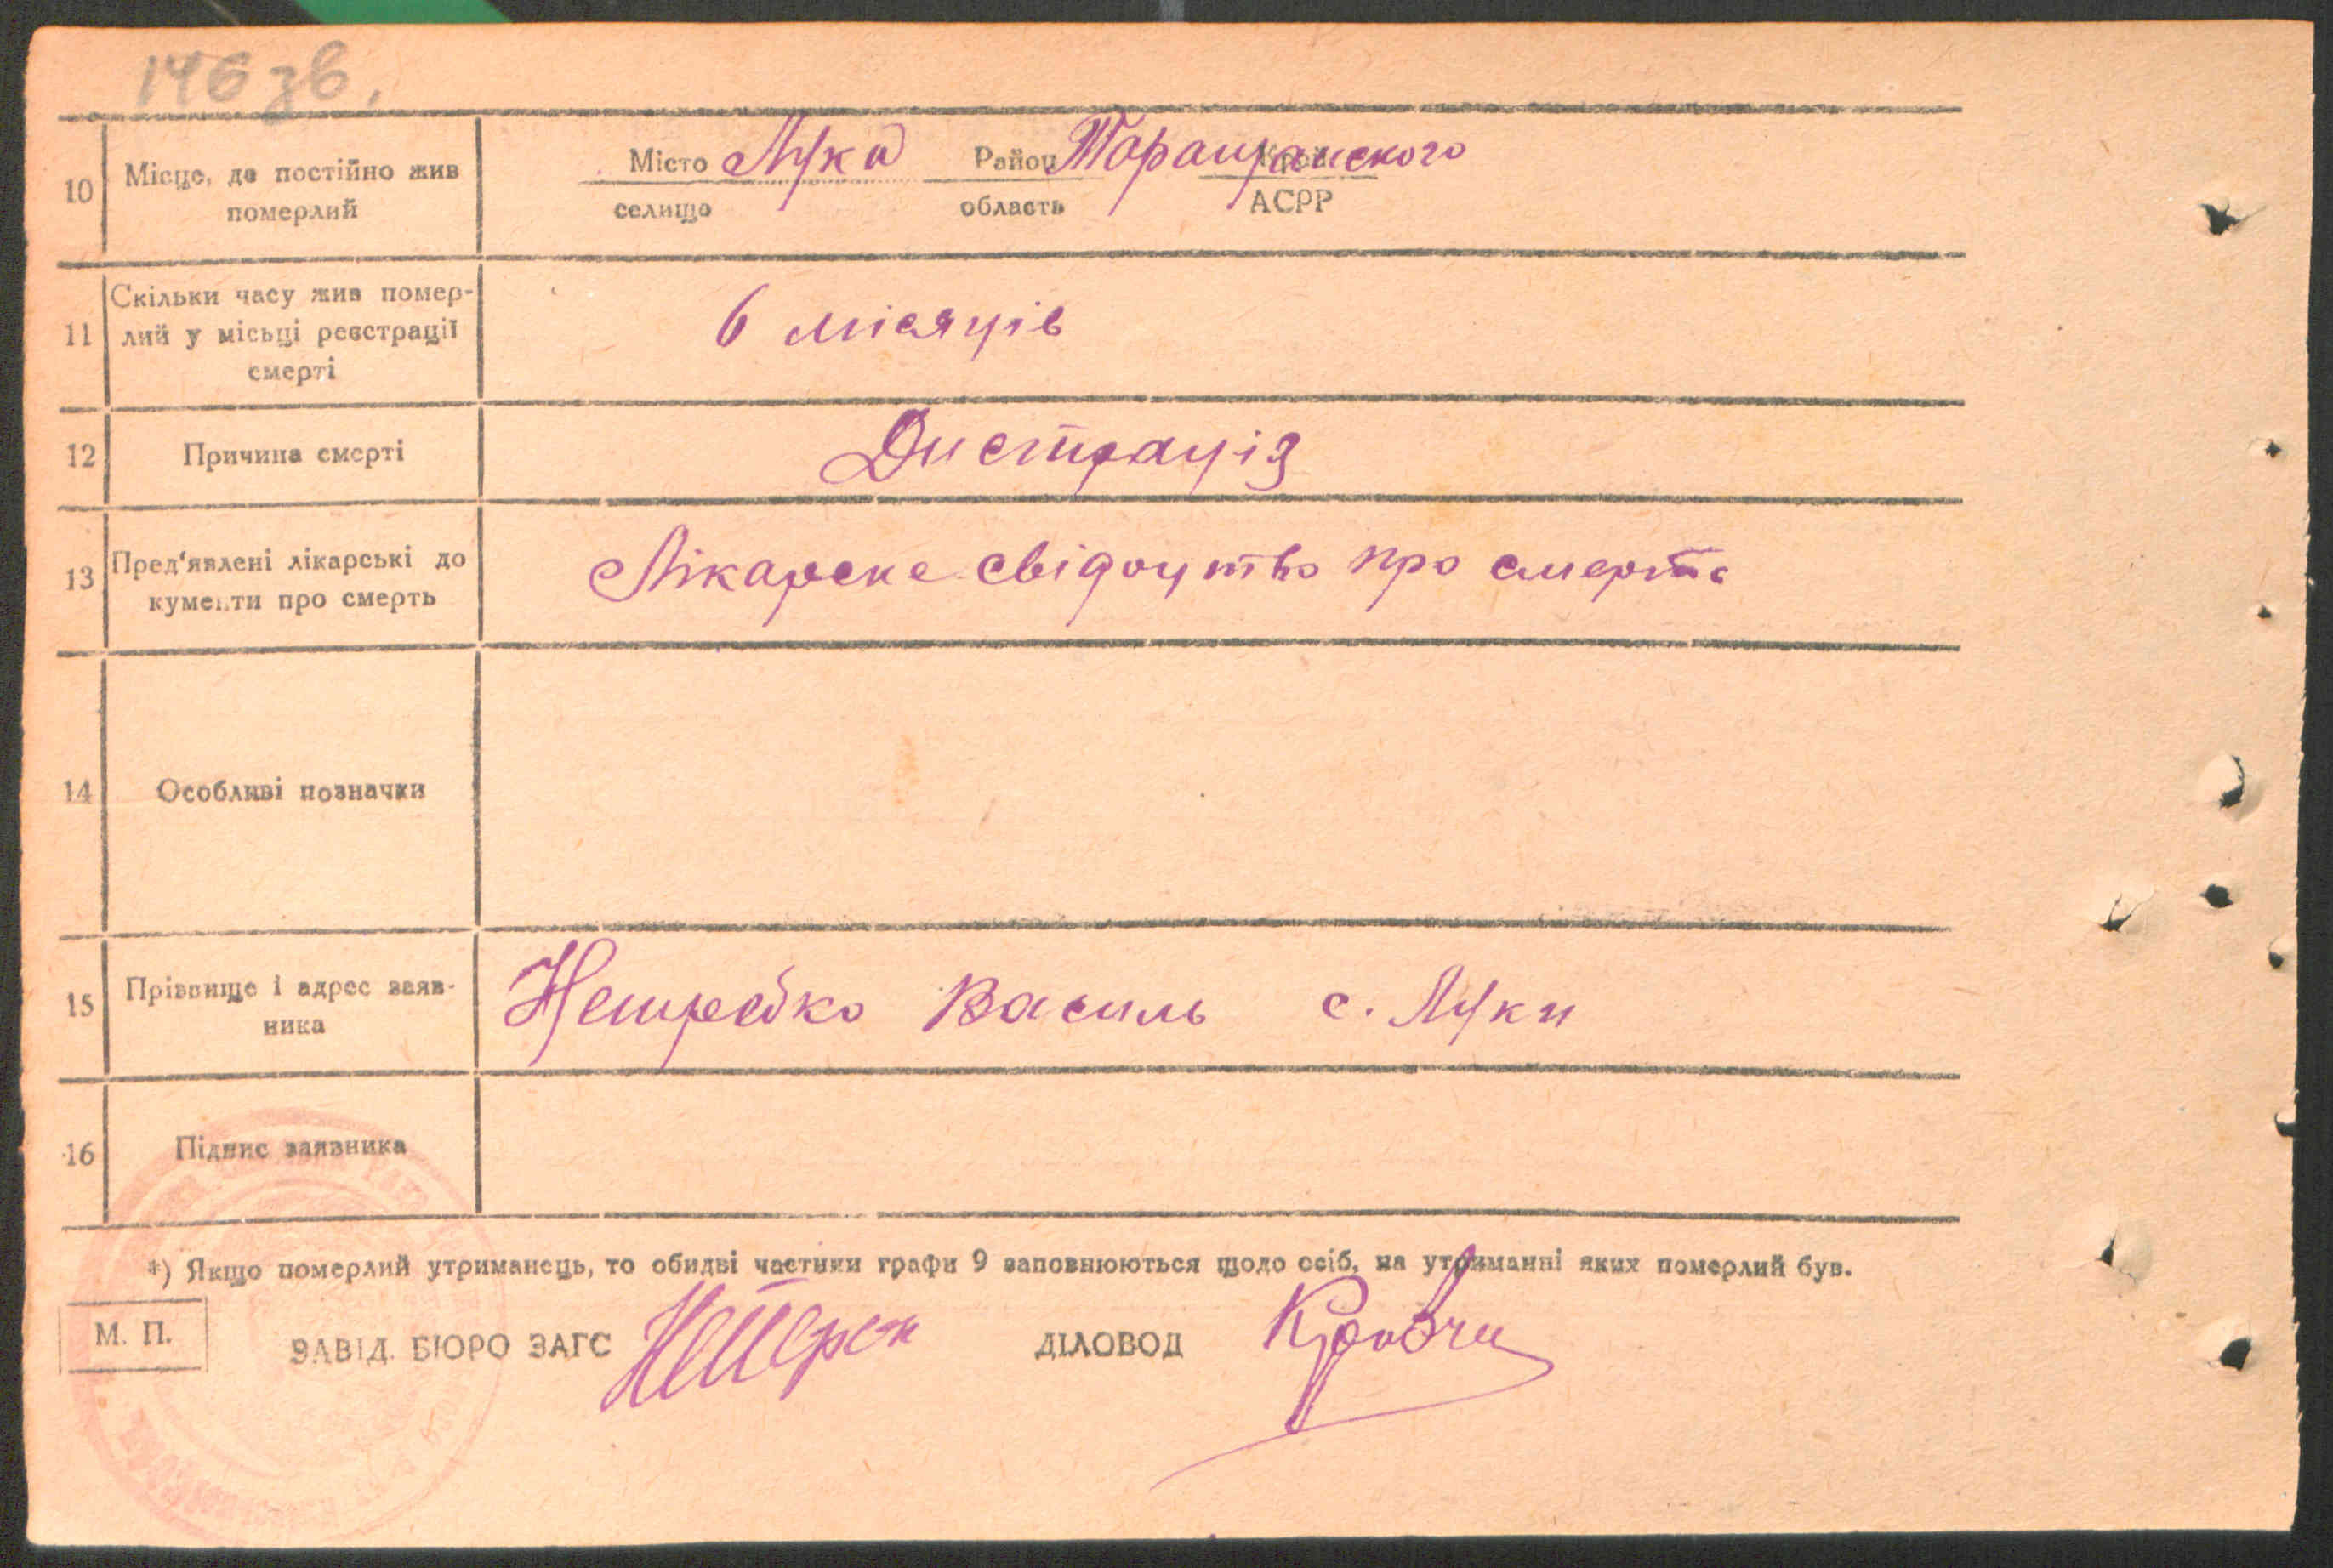 146 зв.
10 Місце, де постійно жив померлий
Місто Лука Район Таращанского Край
селище область АСРР
11 Скільки часу жив помер-
лий у місьці реєстрації
смерті
6 місяців
12 Причина смерті
Дистрация
13 Пред'явлені лікарські до
кументи про смерть
Лікарске свідоцтво про смерть
14 Особливі позначки
15 Прізвище і адрес заяв-
ника
Василь с. Луки
16 Підпис заявника
*) Якщо померлий утриманець, то обидві частини графи 9 заповнюються щодо осіб, на утриманні яких померлий був.
М. П.
ЗАВІД. БЮРО ЗАГС ДІЛОВОД